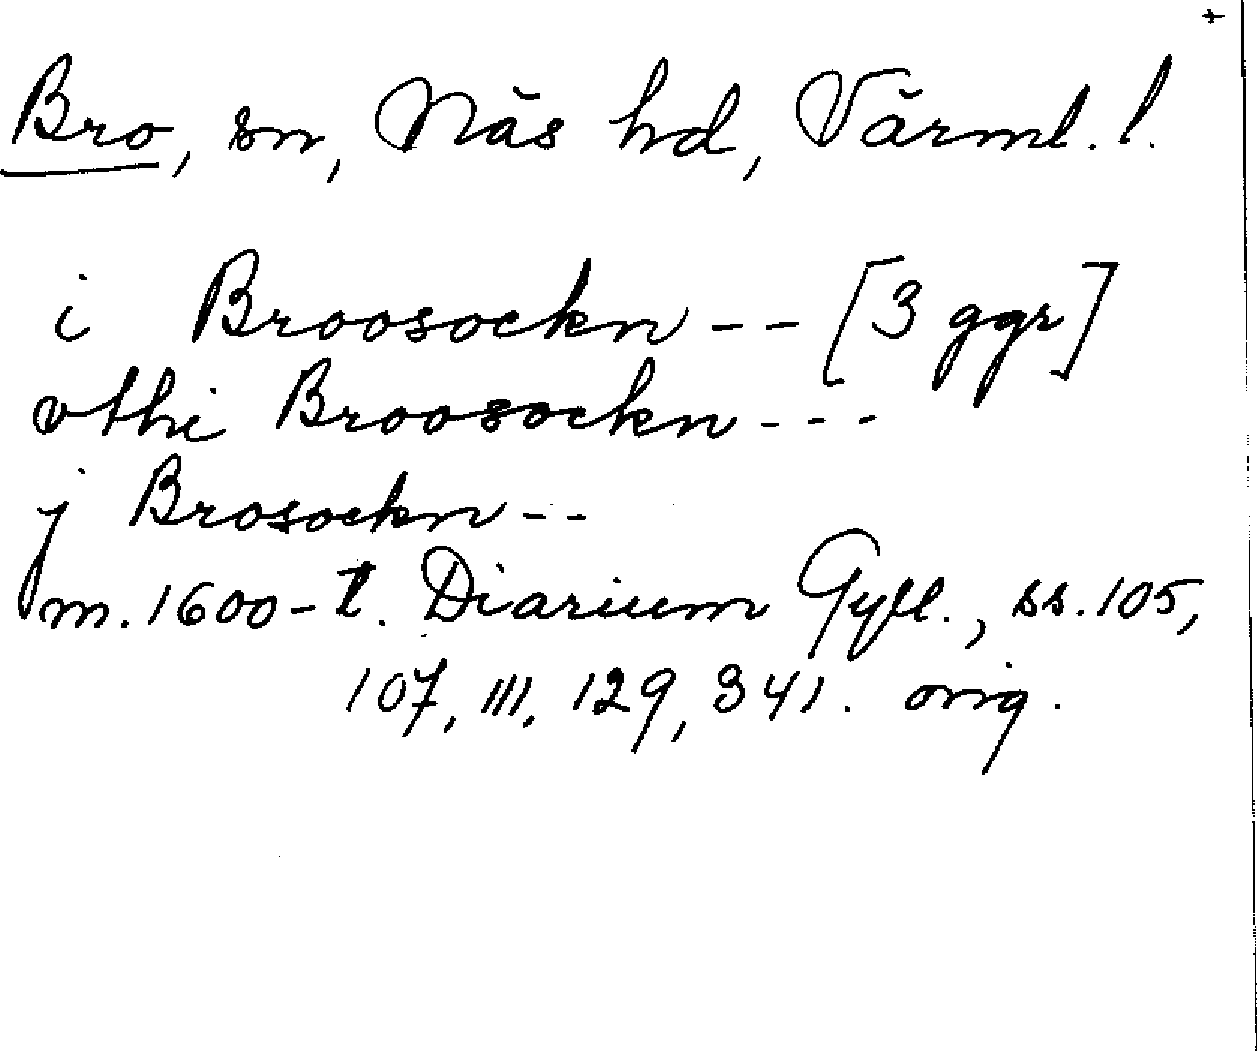 +
Bro, sn, Näs hd, Värml. l.
i Broosockn -- [3 ggr]
vthi Broosockn ---
j Brosockn --
m. 1600-t. Diarium Gyll., ss. 105,
107, 111, 129, 341. orig.